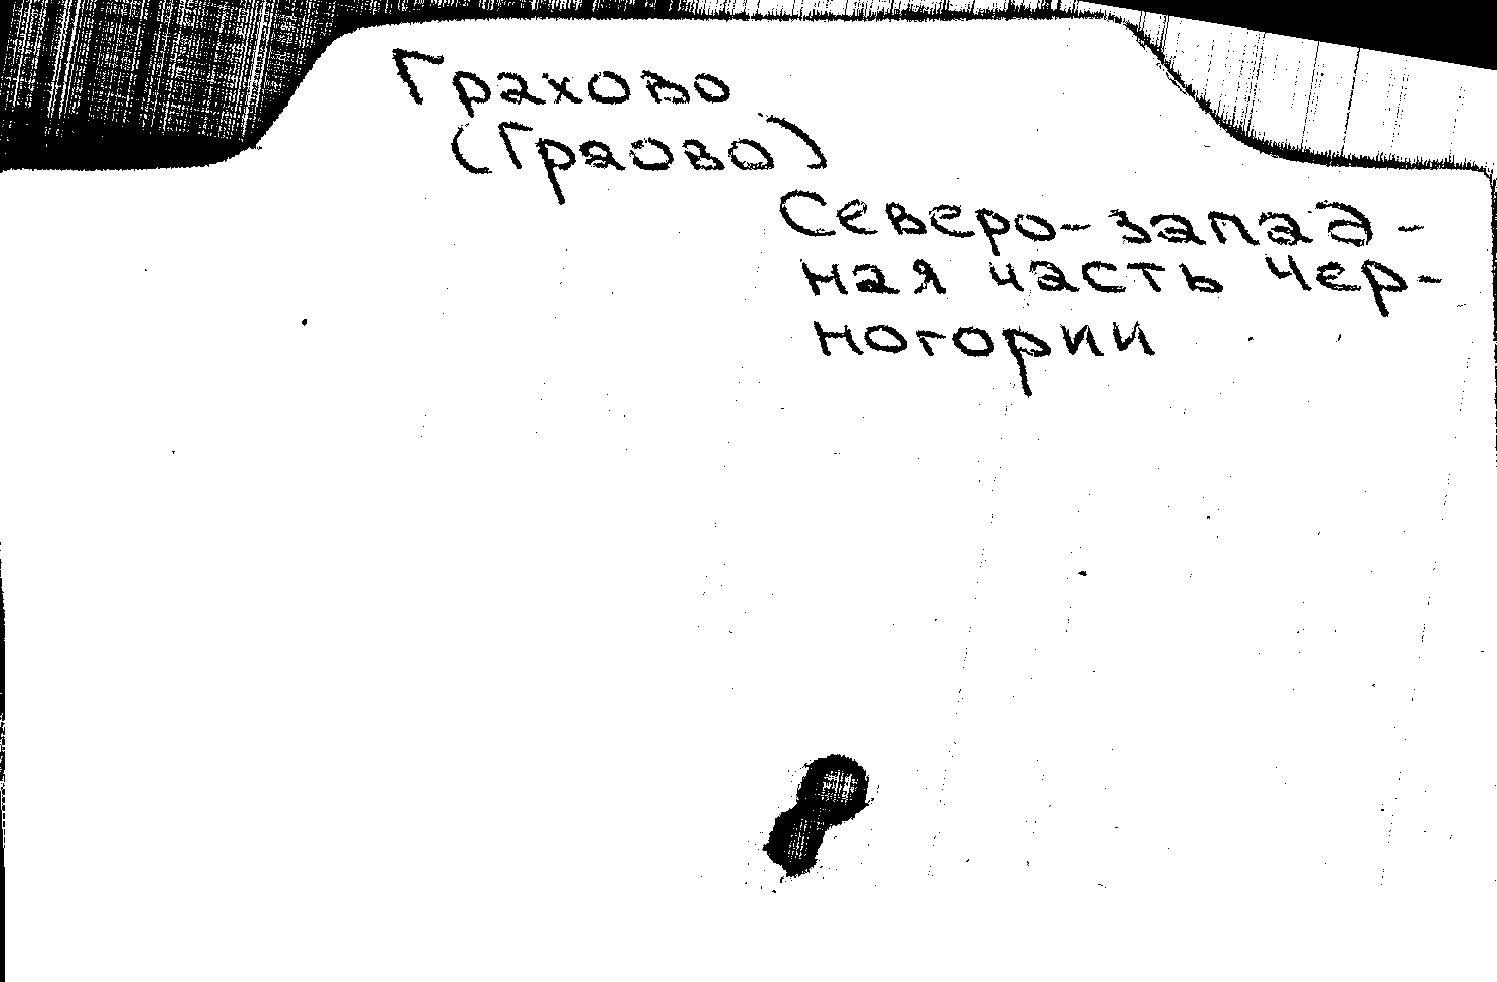 Грахово
(Граово)
Северо-запад-
ная часть Чер-
ногории